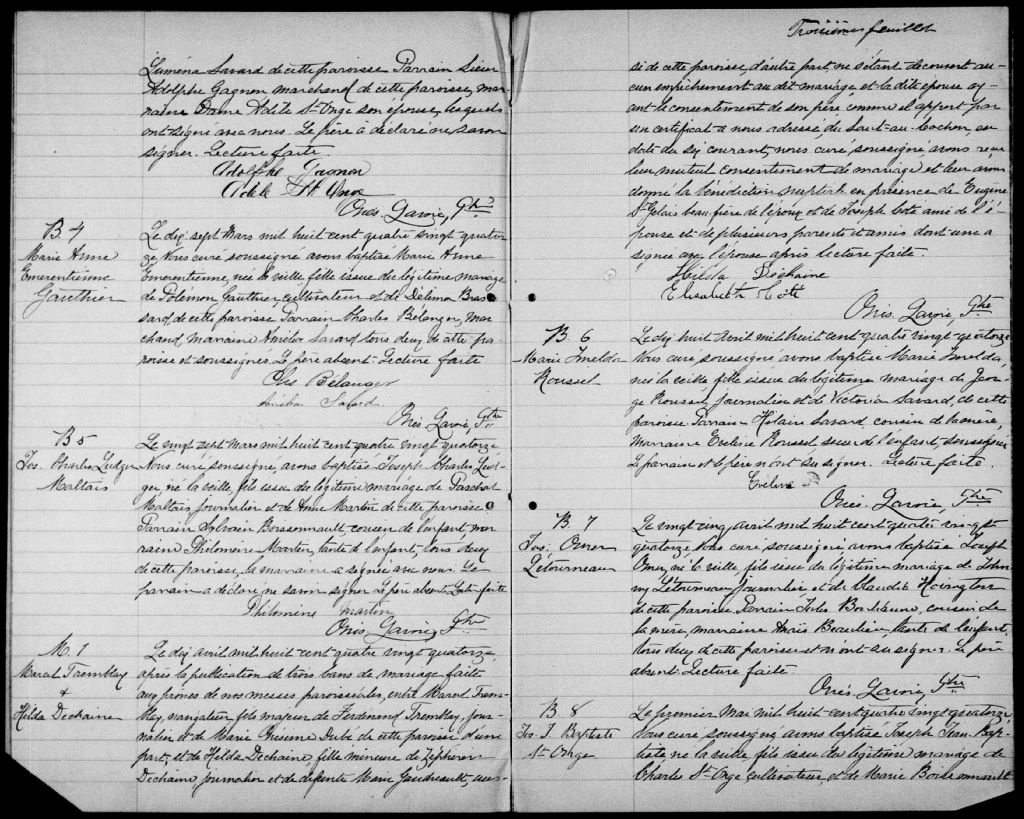 Luména Savard de cette paroisse Parrain Sieur
Adolphe Gagnon marchand de cette paroisse, mar-
raine Dame Adèle St-Onge son épouse, lesquels
ont signé avec nous. Le père à déclaré ne savoir
signer. Lecture faite.
Adolphe Gagnon
Adèle St Onge
Onés. Lavoie, Ptre
B 4
Marie Anne
Emerentienne
Gauthier
Le dix sept Mars mil huit cent quatre vingt quator-
ze Nous curé soussigné avons baptisé Marie Anne
Emerentienne, née la veille fille issue de légitime mariage
de Polémon Gauthier cultivateur et de Délima Bras
sard de cette paroisse Parrain Charles Bélanger, mar
chand, marraine Amélia Savard tous deux de cette pa
roisse et soussignés. Le père absent. Lecture faite
Chs Bélanger
Amelia Savard
Onés Lavoie, Ptre
B 5
Jos. Charles Ludger
Maltais
Le vingt sept Mars mil huit cent quatre vingt quatorze
Nous curé soussigné, avons baptisé Joseph Charles Lud-
ger, né la veille fils issu du légitime mariage de Paschal
Maltais journalier et de Anne Martin de cette paroisse
Parrain Sylvain Boissonnault, cousin de l'enfant, mar
raine Philomène Martin, tante de l'enfant, tous deux
de cette paroisse, la marraine a signé avec nous. Le
parrain a déclaré ne savoir signer. Le père absent. Lecture faite
Philomène Martin
Onés Lavoie, Ptre
M. 1
Marcel Tremblay
&
Hilda Dechaine
Le dix avril mil huit cent quatre vingt quatorze,
après la publication de trois bans de mariage faite
aux prônes de nos messes paroissiales, entre Marcel Trem-
blay, navigateur fils majeur de Ferdinand Tremblay, jour-
nalier et de Marie Onésime Dubé de cette paroisse d'une
part, et de Hilda Dechaine, fille mineure de Zéphirin
Dechaine journalier et de défunte Marie Gaudreault, aus-
Troisième feuillet
si de cette paroisse, d'autre part, ne s'étant découvert au-
cun empêchement au dit mariage et la dite épouse ay-
ant le consentement de son père comme il appert par
un certificat a nous adressé, du Sault-au-Cochon, en
date du six courant, nous curé, soussigné, avons reçu
leur mutuel consentement de mariage et leur avons
donné la bénédiction nuptiale en présence de Eugène
St Gelais beau-frère de l'époux et de Joseph Coté ami de l'é-
pouse et de plusieurs parents et amis dont une a
signé avec l'épouse après lecture faite.
Hilda Dechaine
Elisabeth Coté
Onés. Lavoie, Ptre
B 6
Marie Imelda
Roussel
Le dix huit avril mil huit cent quatre vingt quatorze
Nous curé soussigné avons baptisé Marie Imelda,
née la veille fille issue du légitime mariage de Geor-
ge Roussel, journalier et de Victoria Savard, de cette
paroisse Parrain Hilaire Savard, cousin de la mère,
Marraine Eveline Roussel sœur de l'enfant, soussignée
Le parrain et le père n'ont su signer. Lecture faite.
Eveline R
Onés. Lavoie, Ptre
B 7
Jos. Omer
Létourneau
Le vingt cinq avril mil huit cent quatre vingt
quatorze Nous curé soussigné avons baptisé Joseph
Omer, né la veille, fils issu du légitime mariage de John-
ny Létourneau journalier et de Claudia Hovington
de cette paroisse Parrain Jules Bouliane, cousin de
la mère, marraine Anaïs Beaulieu, tante de l'enfant,
tous deux de cette paroisse et n'ont su signer. Le père
absent. Lecture faite
Onés. Lavoie, Ptre
B 8
Jos. J. Baptiste
St-Onge
Le premier mai mil huit-cent quatre vingt quatorze,
Nous curé soussigné avons baptisé Joseph Jean-Bap-
tiste né la veille fils issu du légitime mariage de
Charles St-Onge cultivateur, et de Marie Boissonnault